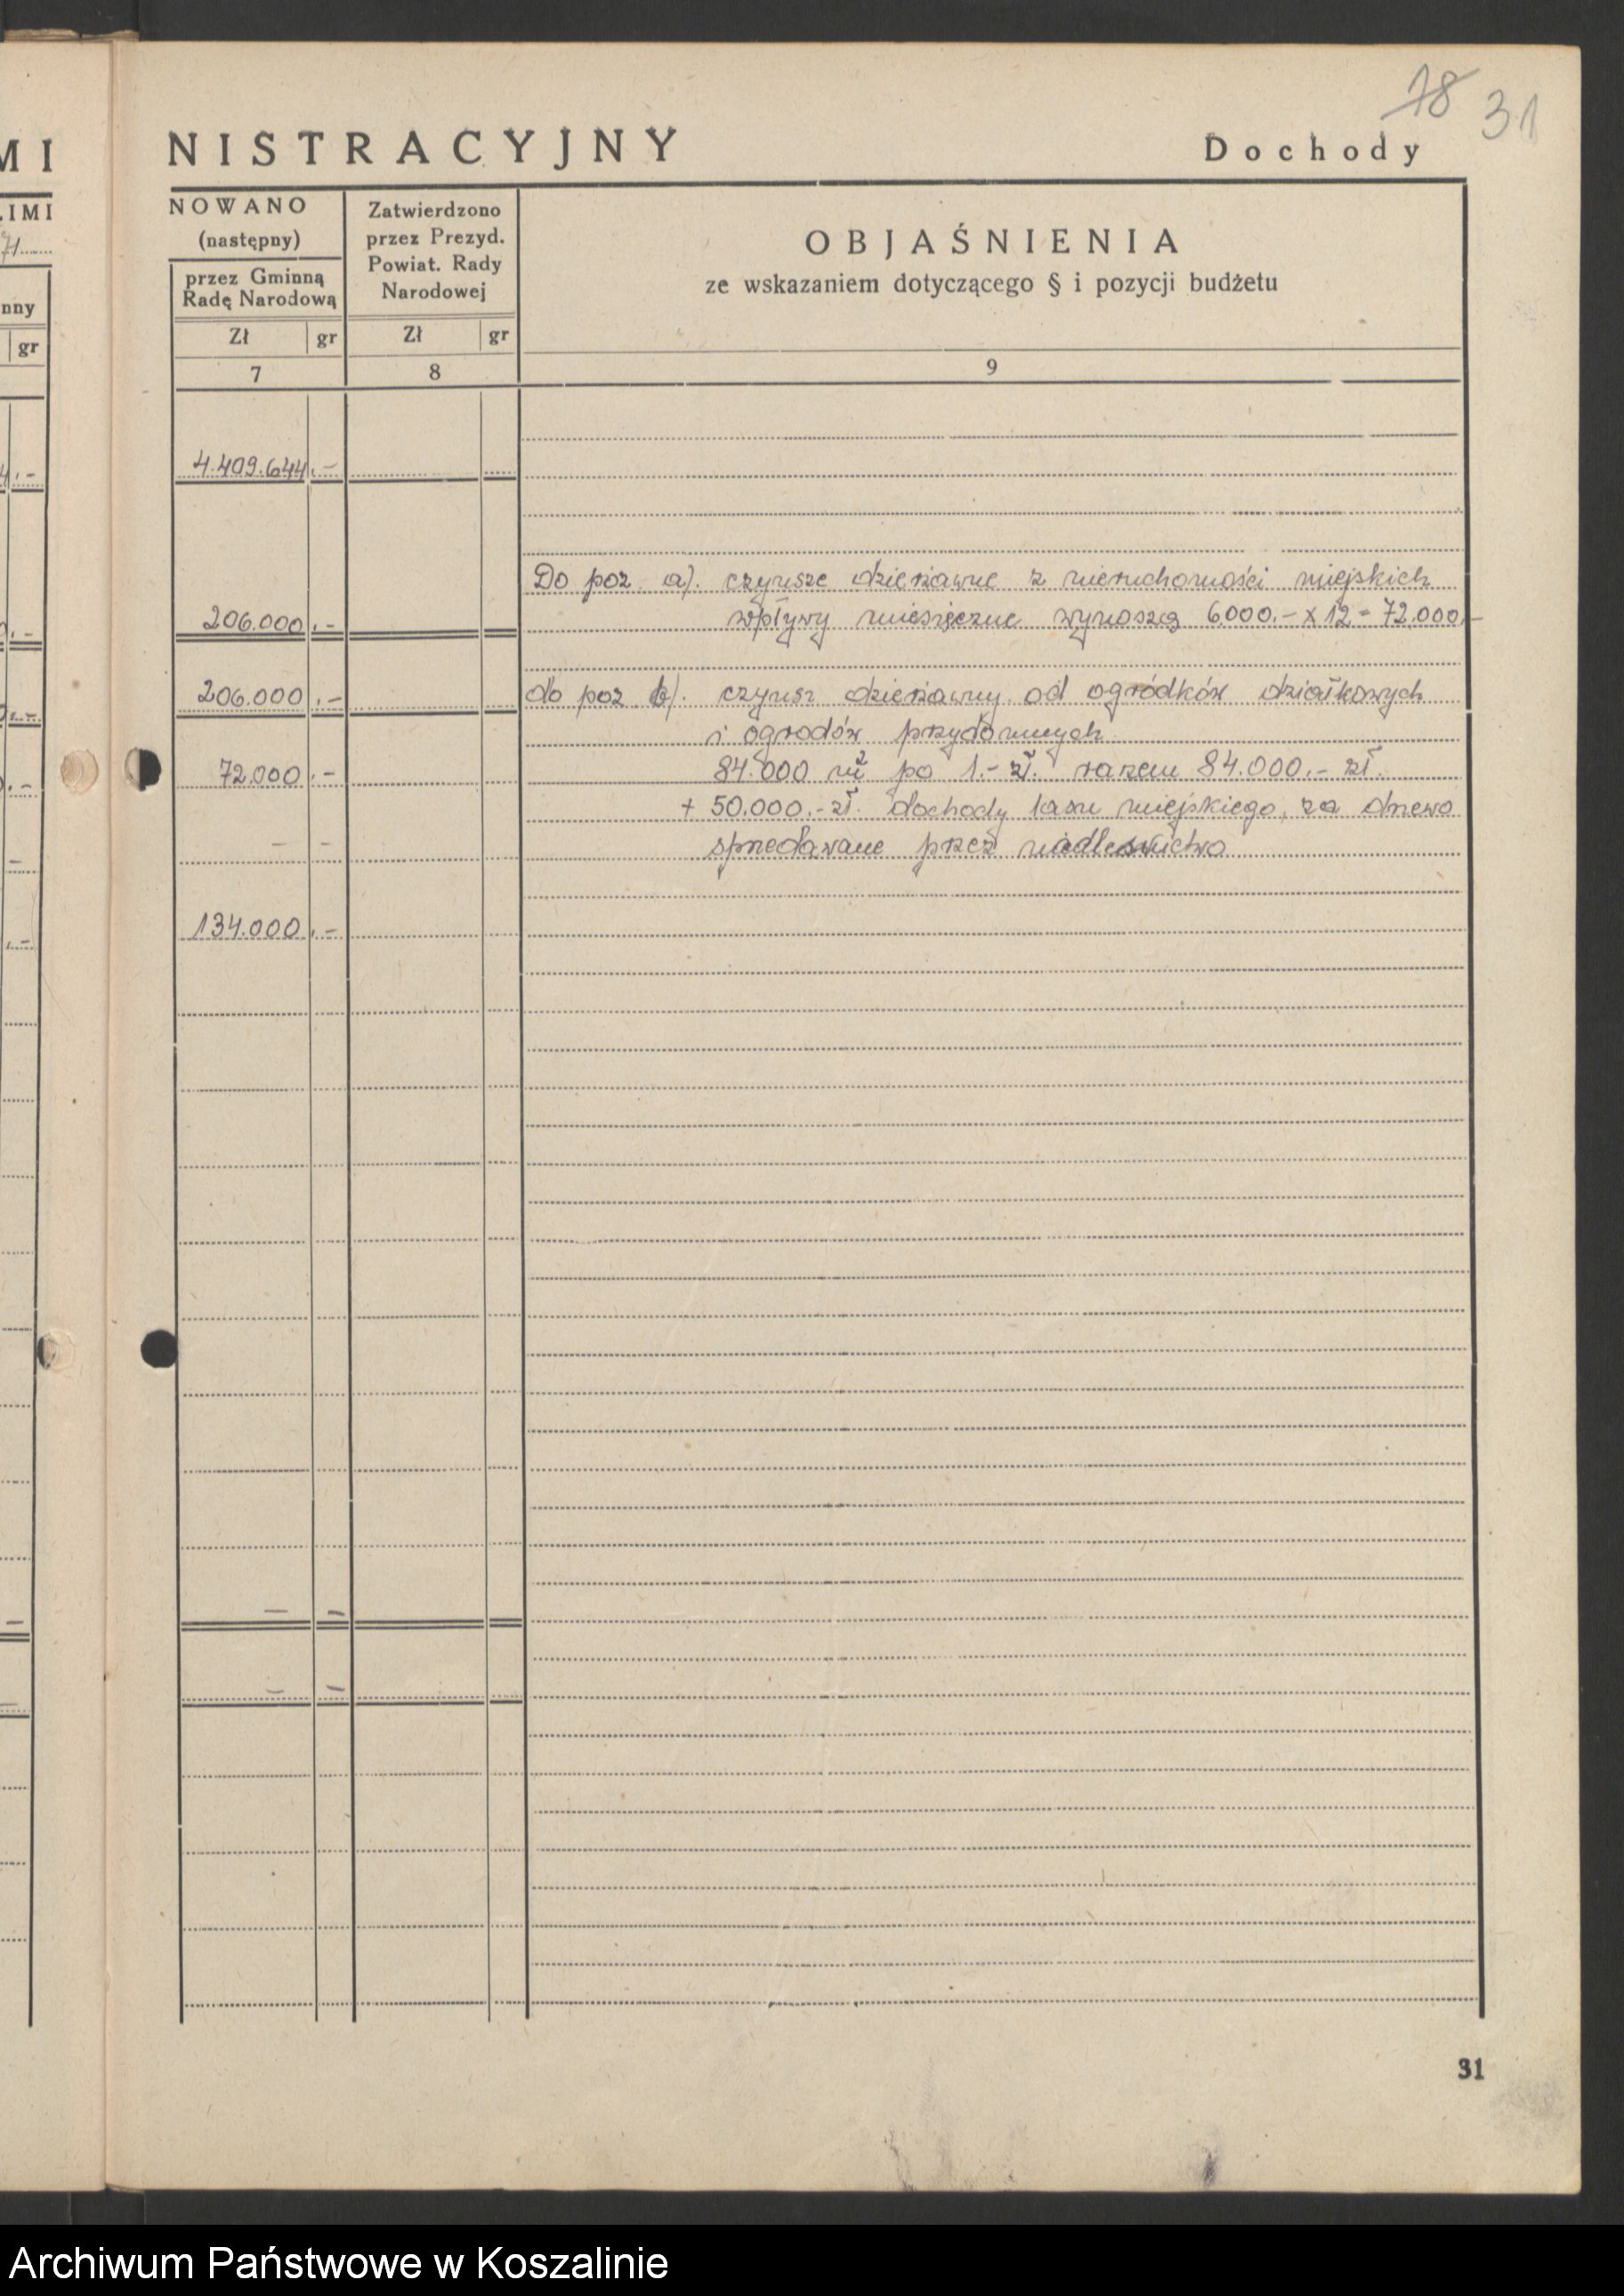 18 31
MI
NISTRACYJNY
Dochody
LIMI
71
nny
gr
NOWANO
(następny)
przez Gminną
Radę Narodową
Zł gr
7
Zatwierdzono
przez Prezyd.
Powiat. Rady
Narodowej
Zł gr
8
OBJAŚNIENIA
ze wskazaniem dotyczącego § i pozycji budżetu
9
4.409.644,-
Do poz. a). czynsze dzierżawne z nieruchomości miejskich
206.000,- wpływy miesięczne wynoszą 6.000.- x 12 = 72.000,-
206.000,- do poz b). czynsz dzierżawny od ogródków działkowych
i ogrodów przydomnych
72.000,- 84.000 m² po 1.- zł. razem 84.000.- zł.
+ 50.000.- zł. dochody lasu miejskiego, za drzewo
- - sprzedawane przez nadleśnictwo
134.000,-
- -
- -
31
Archiwum Państwowe w Koszalinie